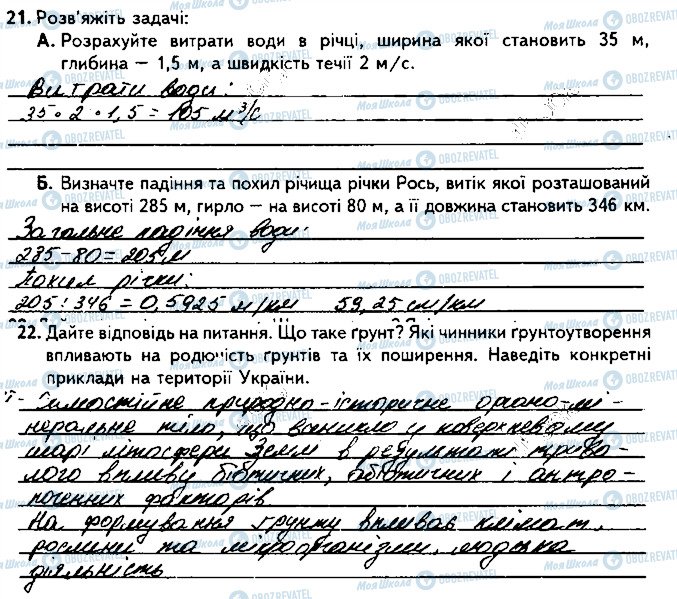 21. Розв'яжіть задачі:
А. Розрахуйте витрати води в річці, ширина якої становить 35 м,
глибина — 1,5 м, а швидкість течії 2 м/с.
Витрати води:
35 · 2 · 1,5 = 105 м³/с
Б. Визначте падіння та похил річища річки Рось, витік якої розташований
на висоті 285 м, гирло — на висоті 80 м, а її довжина становить 346 км.
Загальне падіння води:
285-80=205м
Похил річки:
205 : 346 = 0,5925 м/км 59,25 см/км
22. Дайте відповідь на питання. Що таке ґрунт? Які чинники ґрунтоутворення
впливають на родючість ґрунтів та їх поширення. Наведіть конкретні
приклади на території України.
Самостійне природно-історичне органо-мі-
неральне тіло, що виникло у поверхневому
шарі літосфери Землі в результаті трива-
лого впливу біотичних, абіотичних і антро-
погенних факторів
На формування ґрунту впливає клімат,
рослини та мікроорганізми, людська
діяльність